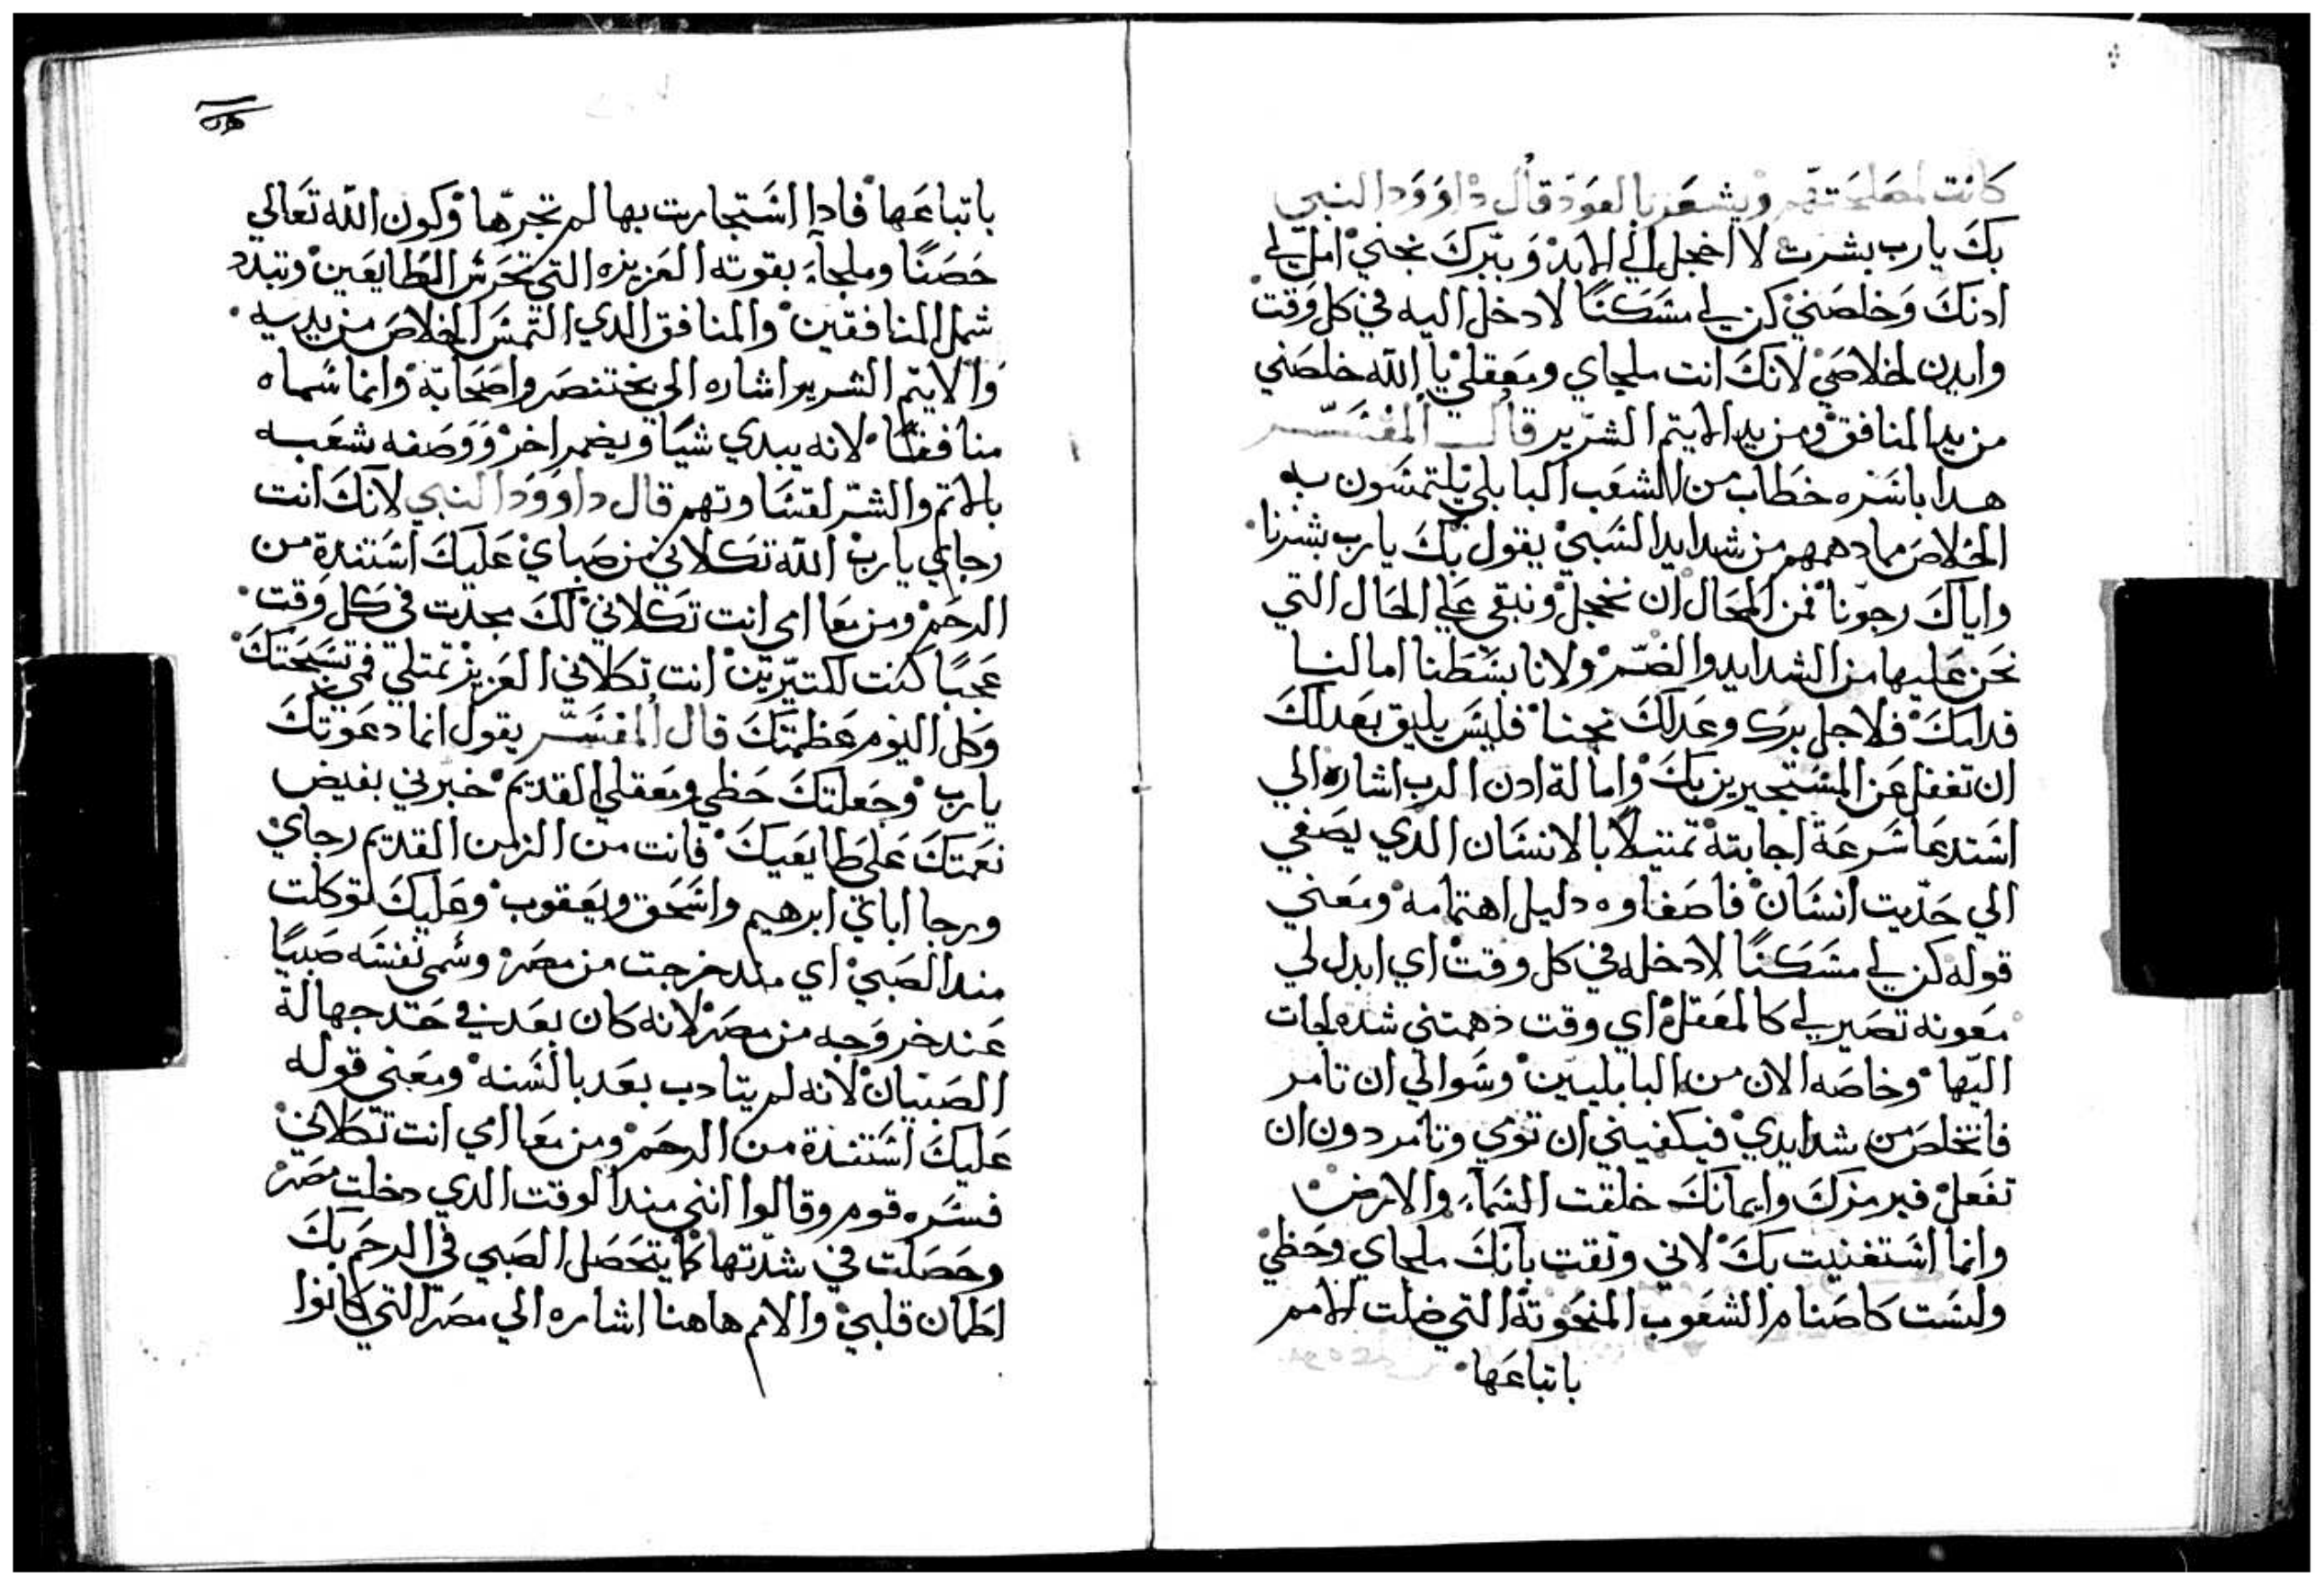 كانت لمصلحتهم ويشعرنا بالعود قال داوود النبي
بك يارب بشرت لا اخجل الي الابد وببرك نجني امل لي
ادنك وخلصني كن لي مسكنًا لادخل اليه في كل وقت
وايدن لخلاصي لانك انت ملجاي ومعقلي يا الله خلصني
من يد المنافق ومن يد الايتم الشرير قال المفسر
هدا باسره خطاب من الشعب البابلي يلتمسون به
الخلاص مما دهمهم من شدايد السبي يقول بك يارب بشرنا
واياك رجونا فمن المحال ان نخجل ونبقي علي الحال التي
نحن عليها من الشدايد والضر ولانا بسطنا امالنا
قدامك فلاجل برك وعدلك نجنا فليس يليق بعدلك
ان تغفل عن المستجيرين بك وامالة ادن الرب اشاره الي
استدعا سرعة اجابته تمتيلًا بالانسان الدي يصغي
الي حديت انسان فاصغاوه دليل اهتمامه ومعني
قوله كن لي مسكنًا لادخله في كل وقت اي ابدل لي
معونه تصير لي كالمعقل اي وقت دهمتني شده لجات
اليها وخاصه الان من البابليين وسوالي ان تامر
فاتخلص من شدايدي فيكفيني ان تومي وتامر دون ان
تفعل فبرمزك وايمانك خلقت السماء والارض
وانما استغنيت بك لاني وتقت بانك ملجاي وحظي
ولست كاصنام الشعوب المنحوته التي ضلت الامم
باتباعها
باتباعها فادا استجارت بها لم تجرها وكون الله تعالي
حصنًا وملجاء بقوته العزيزه التي تحرس الطايعين وتبدد
شمل المنافقين والمنافق الدي التمس الخلاص من يديه
والايتم الشرير اشاره الي بختنصر واصحابه وانما سماه
منافقًا لانه يبدي شيًا ويضمر اخر ووصفه شعبه
بالاتم والشر لقساوتهم قال داوود النبي لانك انت
رجاي يارب الله تكلاني من صباي عليك استندة من
الرحم ومن معا امي انت تكلاني لك مجدت في كل وقت
عجبًا كنت لكتيرين انت تكلاني العزيز تمتلي فمي تسبحتك
وكل اليوم عظمتك قال المفسر يقول انما دعوتك
يارب وجعلتك حظي ومعقلي القديم خبرني بفيض
نعمتك علي طايعيك فانت من الزمن القديم رجاي
ورجا اباتي ابرهيم واسحق ويعقوب وعليك توكلت
مند الصبي اي مند خرجت من مصر وسمي نفسه صبيًا
عند خروجه من مصر لانه كان بعد في حد جهالة
الصبيان لانه لم يتادب بعد بالسنه ومعني قوله
عليك استندة من الرحم ومن معا امي انت تكلاني
فسره قوم وقالوا انني مند الوقت الدي دخلت مصر
وحصلت في شدتها كما يتحصل الصبي في الرحم بك
اطمان قلبي والام هاهنا اشاره الي مصر التي كانوا